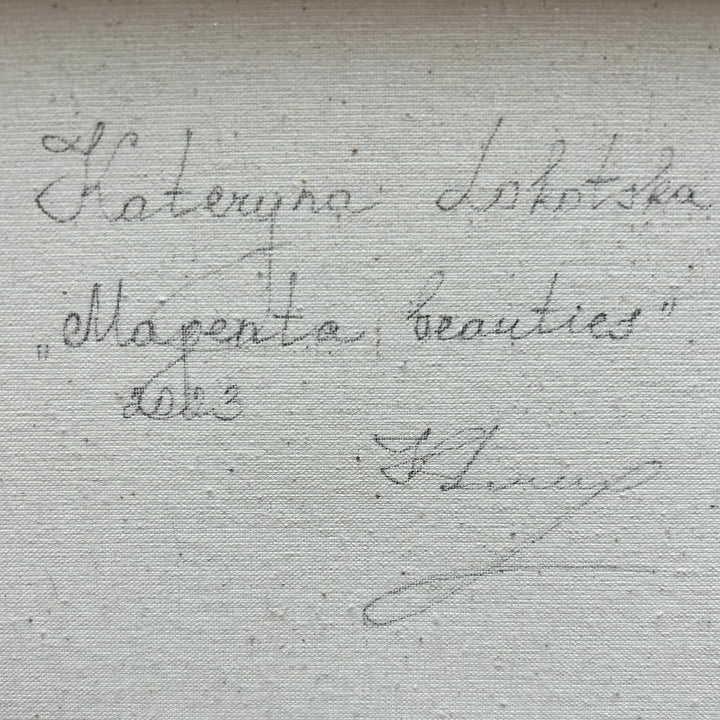 Kateryna Lokotska
„Magenta beauties".
2023